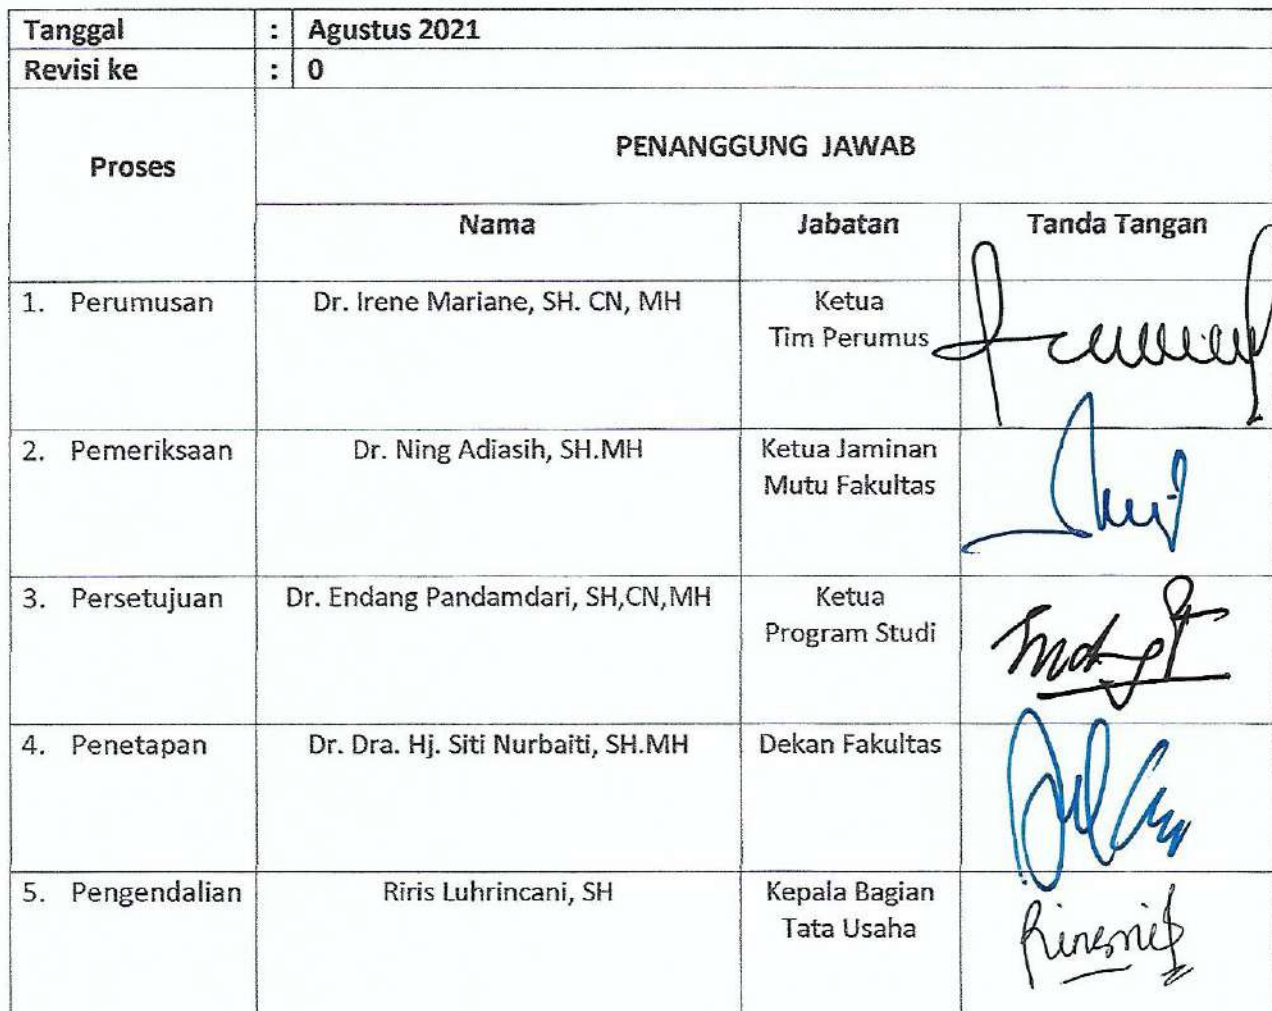 Tanggal : Agustus 2021
Revisi ke : 0
Proses
PENANGGUNG JAWAB
Nama Jabatan Tanda Tangan
1. Perumusan Dr. Irene Mariane, SH. CN, MH Ketua
Tim Perumus
2. Pemeriksaan Dr. Ning Adiasih, SH.MH Ketua Jaminan
Mutu Fakultas
3. Persetujuan Dr. Endang Pandamdari, SH,CN,MH Ketua
Program Studi
4. Penetapan Dr. Dra. Hj. Siti Nurbaiti, SH.MH Dekan Fakultas
5. Pengendalian Riris Luhrincani, SH Kepala Bagian
Tata Usaha